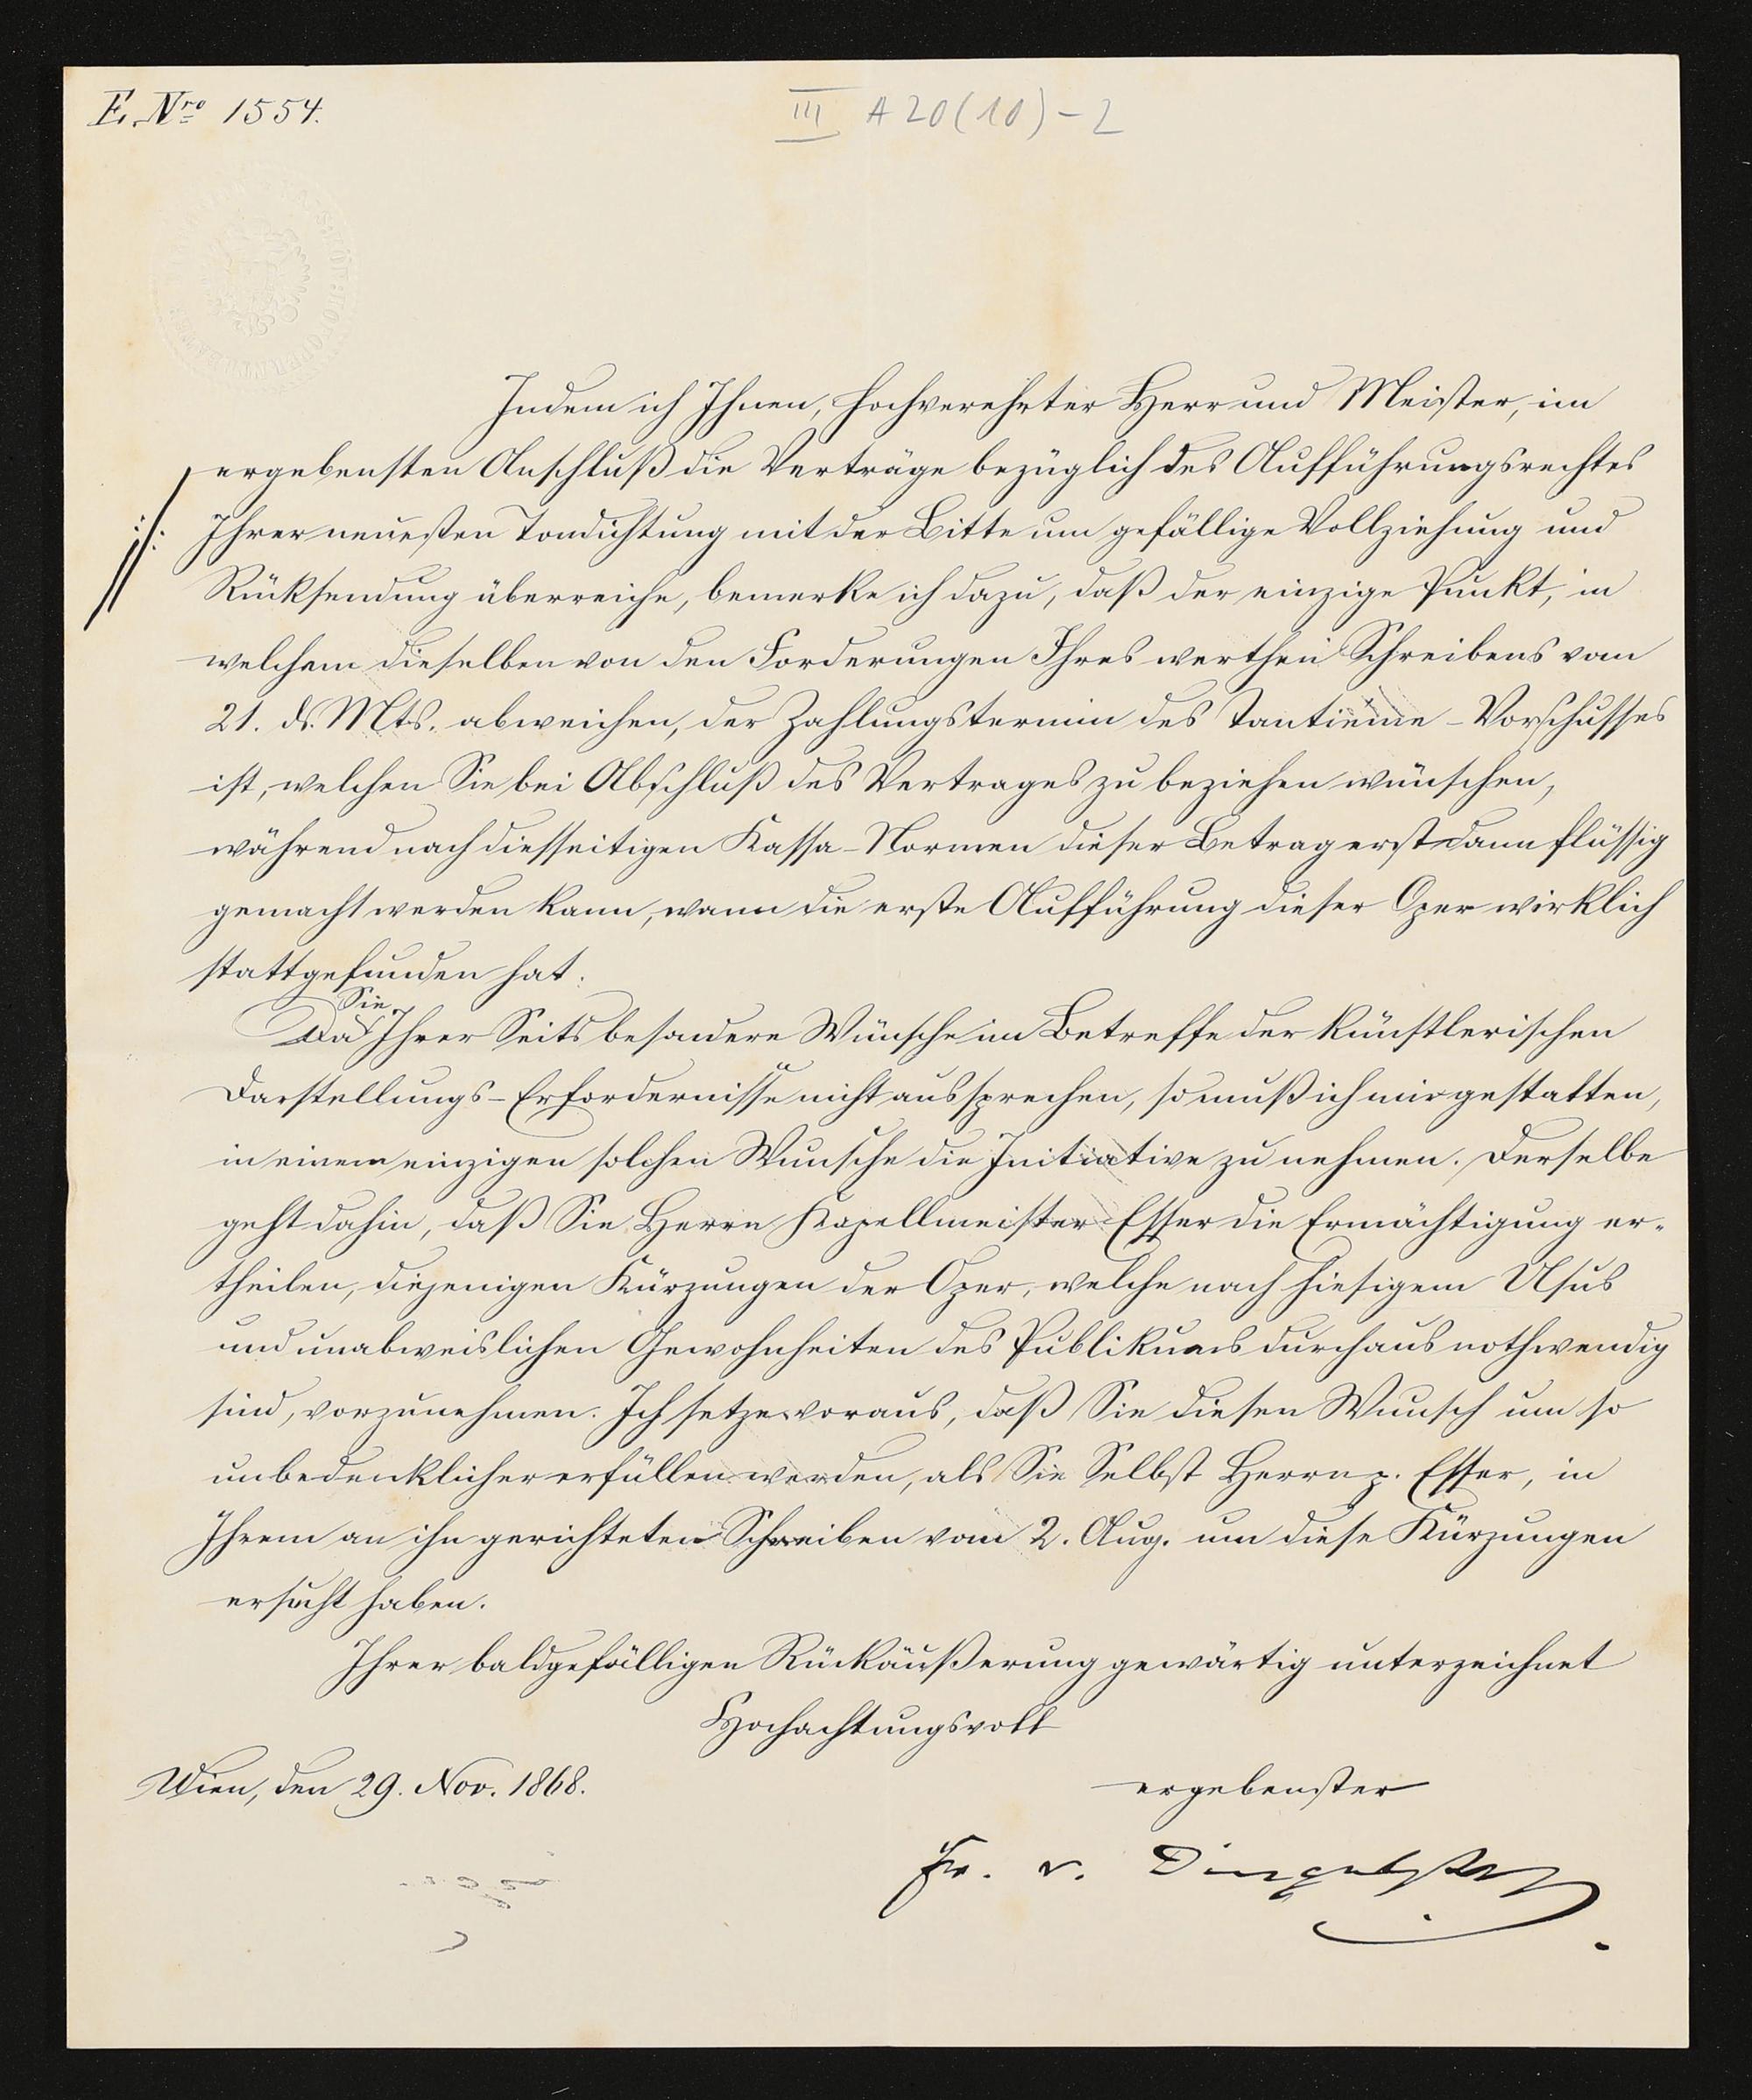 E. Nro 1554.
III A 20 (10) - 2
Indem ich Ihnen, hochverehrter Herr und Meister, im
ergebensten Anschluß die Verträge bezüglich des Aufführungsrechtes
Ihrer neuesten Tondichtung mit der Bitte um gefällige Vollziehung und
Rücksendung überreiche, bemerke ich dazu, daß der einzige Punkt, in
welchem dieselben von den Forderungen Ihres werthen Schreibens vom
21. ds. Mts. abweichen, der Zahlungstermin des Tantième-Vorschusses
ist, welchen Sie bei Abschluß des Vertrages zu beziehen wünschen,
während nach diesseitigen Kassa-Normen dieser Betrag erst dann flüssig
gemacht werden kann, wann die erste Aufführung dieser Oper wirklich
stattgefunden hat.
Sie
Da Ihrer Seits besondere Wünsche im Betreffe der künstlerischen
Darstellungs-Erfordernisse nicht aussprechen, so muß ich mir gestatten,
in einem einzigen solchen Wunsche die Initiative zu nehmen. Derselbe
geht dahin, daß Sie Herrn Kapellmeister Esser die Ermächtigung er-
theilen, diejenigen Kürzungen der Oper, welche nach hiesigem Usus
und unabweislichen Gewohnheiten des Publikums durchaus nothwendig
sind, vorzunehmen. Ich setze voraus, daß Sie diesen Wunsch um so
unbedenklicher erfüllen werden, als Sie Selbst Herrn p. Esser, in
Ihrem an ihn gerichteten Schreiben vom 2. Aug. um diese Kürzungen
ersucht haben.
Ihrer baldgefälligen Rückäußerung gewärtig unterzeichnet
Hochachtungsvoll
Wien, den 29. Nov. 1868.
ergebenster
Fr. v. Dingelstedt